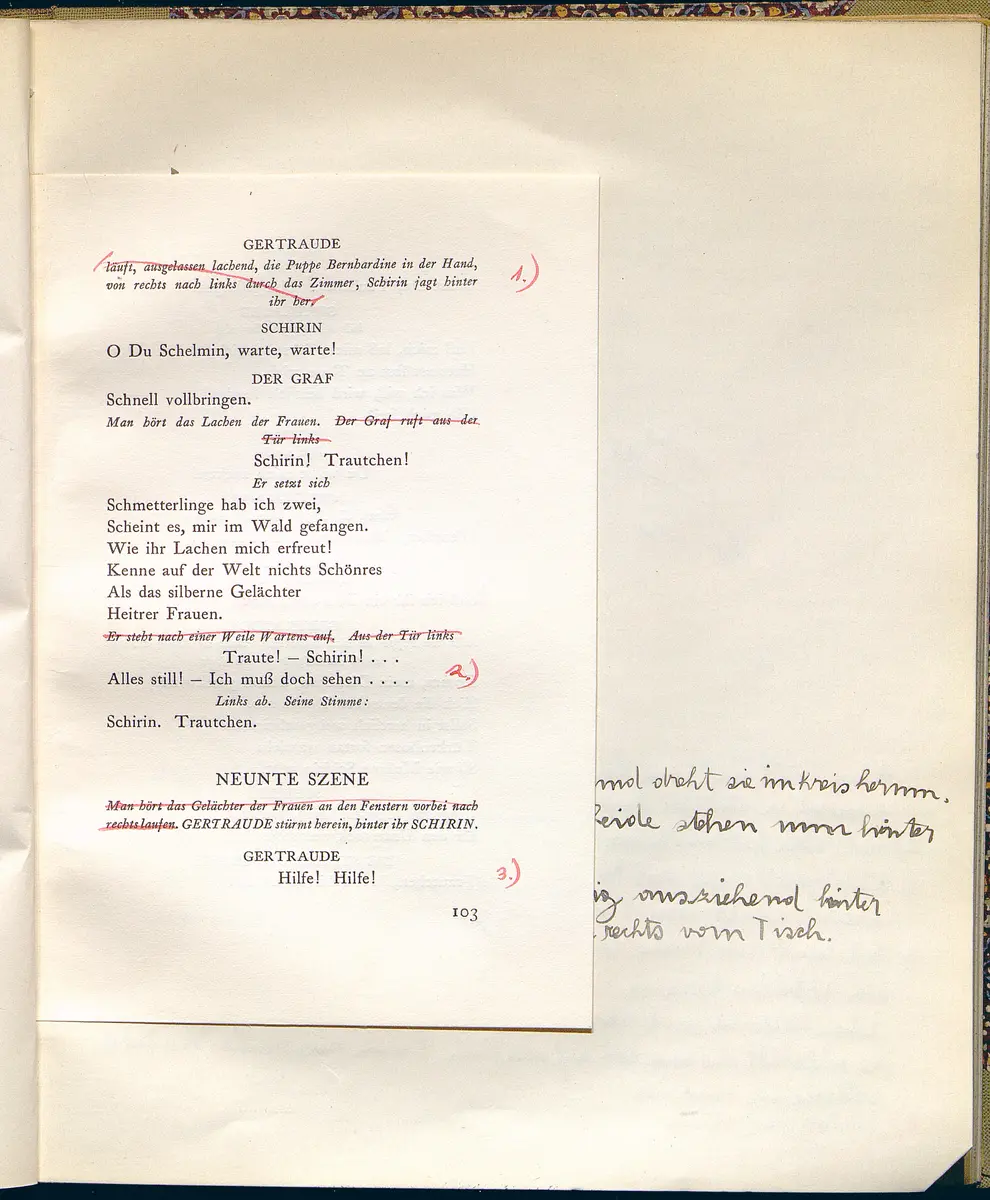 GERTRAUDE
läuft, ausgelassen lachend, die Puppe Bernhardine in der Hand,
von rechts nach links durch das Zimmer, Schirin jagt hinter
ihr her.
1.)
SCHIRIN
O Du Schelmin, warte, warte!
DER GRAF
Schnell vollbringen.
Man hört das Lachen der Frauen. Der Graf ruft aus der
Tür links
Schirin! Trautchen!
Er setzt sich
Schmetterlinge hab ich zwei,
Scheint es, mir im Wald gefangen.
Wie ihr Lachen mich erfreut!
Kenne auf der Welt nichts Schönres
Als das silberne Gelächter
Heitrer Frauen.
Er steht nach einer Weile Wartens auf. Aus der Tür links
Traute! – Schirin! . . .
Alles still! – Ich muß doch sehen . . . .
2.)
Links ab. Seine Stimme:
Schirin. Trautchen.
NEUNTE SZENE
Man hört das Gelächter der Frauen an den Fenstern vorbei nach
rechts laufen. GERTRAUDE stürmt herein, hinter ihr SCHIRIN.
GERTRAUDE
Hilfe! Hilfe!
3.)
103
und dreht sie im Kreis herum.
Beide stehen nun hinter
ausziehend hinter
rechts vom Tisch.